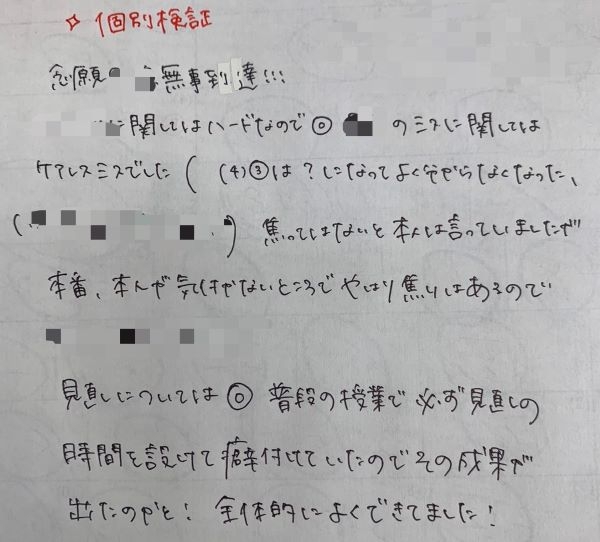 ☆ 個別検証
念願の 無事到達!!!
に関してはハードなので◎ のミスに関しては
ケアレスミスでした( (4)③は?になってよく分からなくなった、
( ) 焦ってはないと本人は言っていましたが
本番、本人が気付かないところでやはり焦りはあるので
見直しについては◎ 普段の授業で必ず見直しの
時間を設けて癖付けていたのでその成果が
出たのかと! 全体的によくできてました!